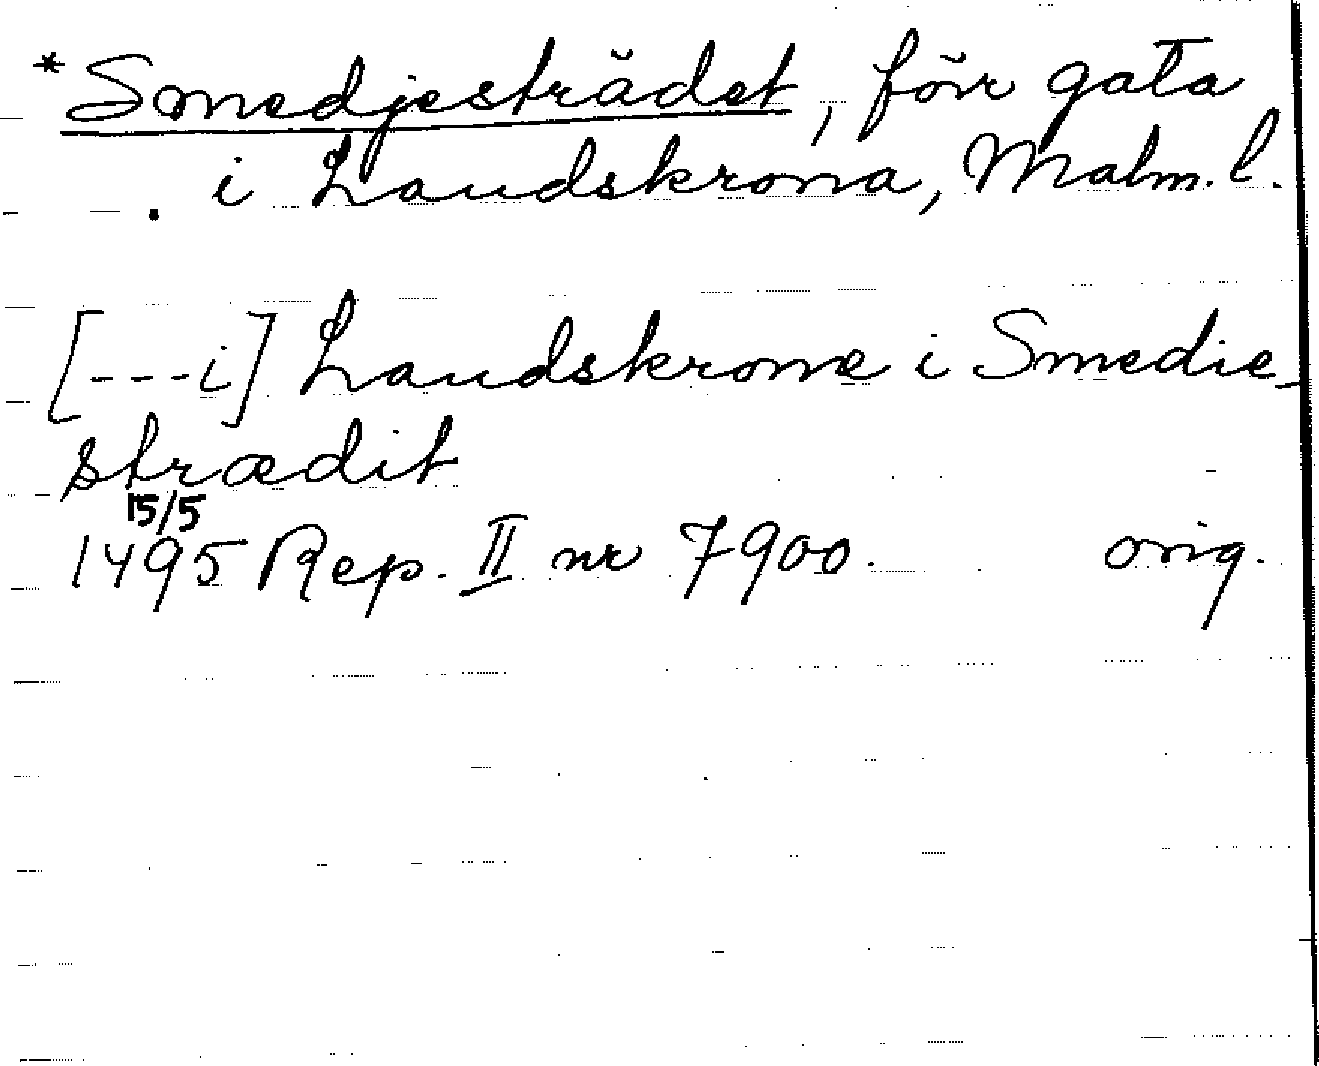 *Smedjesträdet, förr gata
i Landskrona, Malm. l.
[---i] Landskrone i Smedie-
strædit
15/5
1495 Rep. II nr 7900. orig.